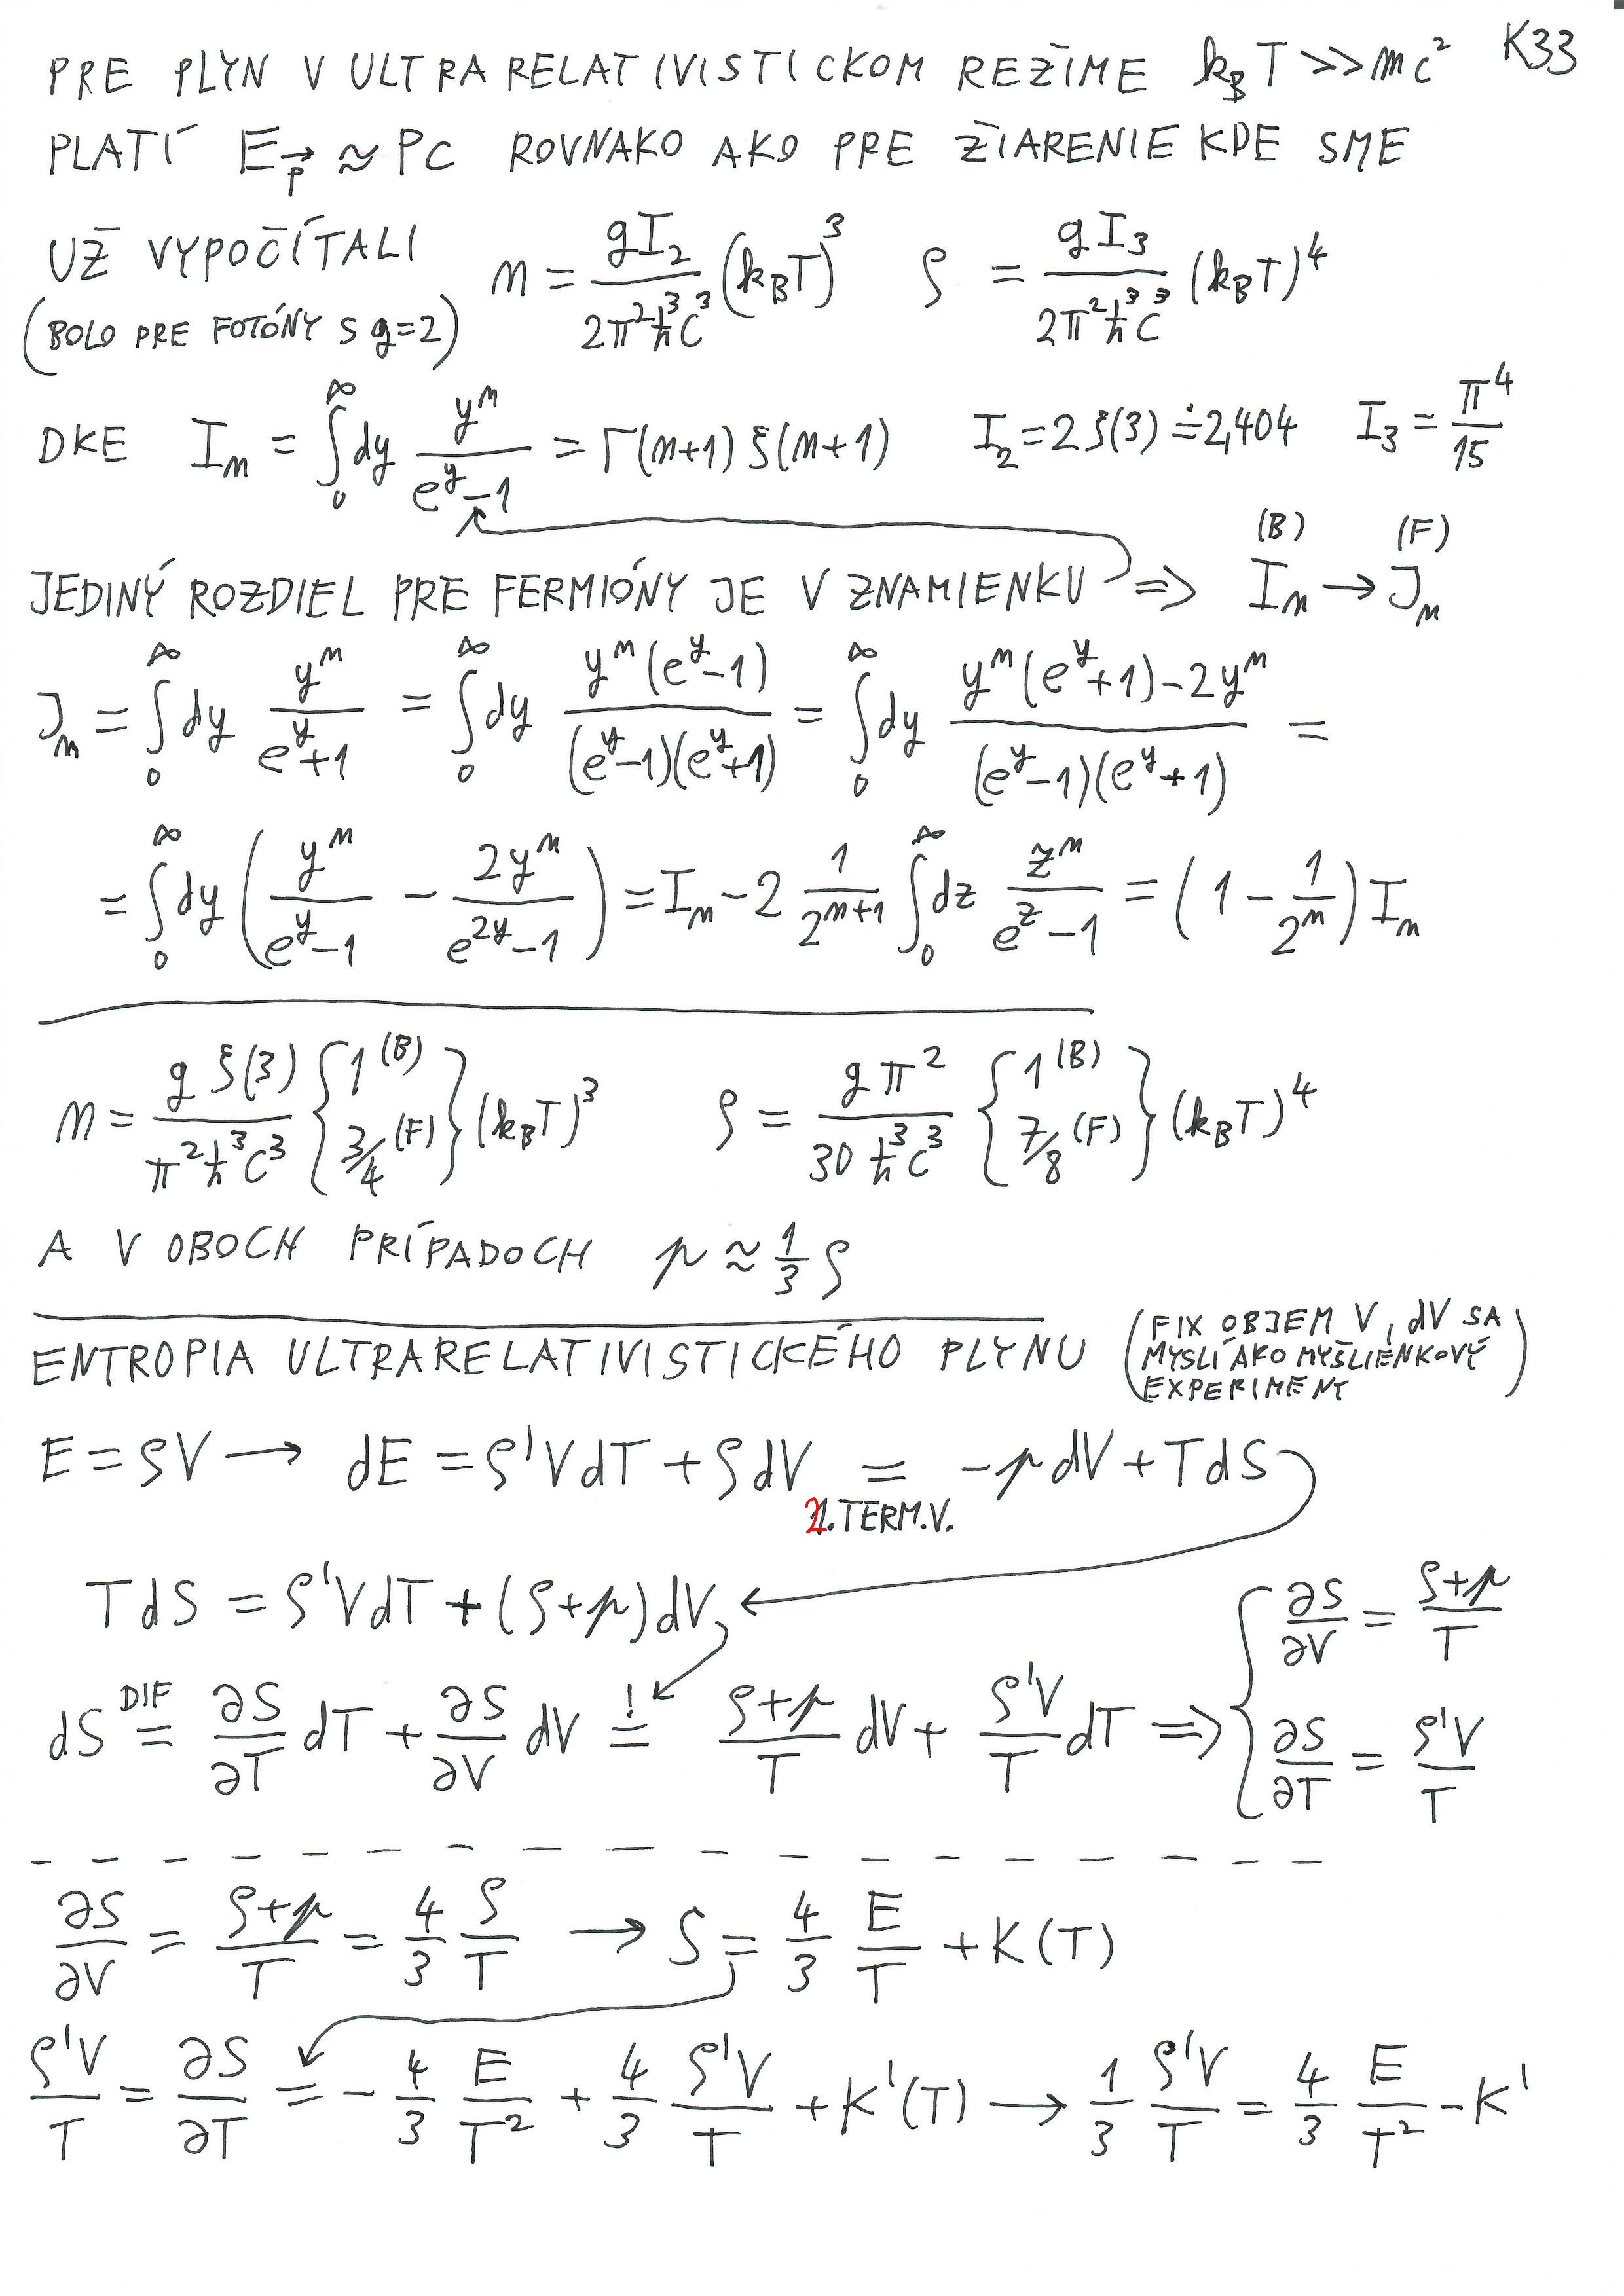 K33
PRE PLYN V ULTRARELATIVISTICKOM REŽIME k_B T >> mc²
PLATÍ E_p⃗ ≈ PC ROVNAKO AKO PRE ŽIARENIE KDE SME
UŽ VYPOČÍTALI n = gI₂/(2π²ħ³c³) (k_B T)³ ρ = gI₃/(2π²ħ³c³) (k_B T)⁴
(BOLO PRE FOTÓNY S g=2)
DKE I_n = ∫₀^∞ dy yⁿ/(e^y−1) = Γ(n+1) ζ(n+1) I₂ = 2ζ(3) ≐ 2,404 I₃ = π⁴/15
(B) (F)
JEDINÝ ROZDIEL PRE FERMIÓNY JE V ZNAMIENKU ⇒ I_n → J_n
J_n = ∫₀^∞ dy yⁿ/(e^y+1) = ∫₀^∞ dy yⁿ(e^y−1)/((e^y−1)(e^y+1)) = ∫₀^∞ dy (yⁿ(e^y+1)−2yⁿ)/((e^y−1)(e^y+1)) =
= ∫₀^∞ dy (yⁿ/(e^y−1) − 2yⁿ/(e^{2y}−1)) = I_n − 2 1/2^{n+1} ∫₀^∞ dz zⁿ/(e^z−1) = (1 − 1/2ⁿ) I_n
n = gζ(3)/(π²ħ³c³) {1 (B) 3/4 (F)} (k_B T)³ ρ = gπ²/(30ħ³c³) {1 (B) 7/8 (F)} (k_B T)⁴
A V OBOCH PRÍPADOCH p ≈ 1/3 ρ
ENTROPIA ULTRARELATIVISTICKÉHO PLYNU (FIX OBJEM V, dV SA
MYSLÍ AKO MYŠLIENKOVÝ
EXPERIMENT)
E = ρV → dE = ρ'VdT + ρdV = −pdV + TdS
2.TERM.V.
TdS = ρ'VdT + (ρ+p)dV
dS =^{DIF} ∂S/∂T dT + ∂S/∂V dV =^{!} (ρ+p)/T dV + ρ'V/T dT ⇒ { ∂S/∂V = (ρ+p)/T
∂S/∂T = ρ'V/T
∂S/∂V = (ρ+p)/T = 4/3 ρ/T → S = 4/3 E/T + K(T)
ρ'V/T = ∂S/∂T = −4/3 E/T² + 4/3 ρ'V/T + K'(T) → 1/3 ρ'V/T = 4/3 E/T² − K'